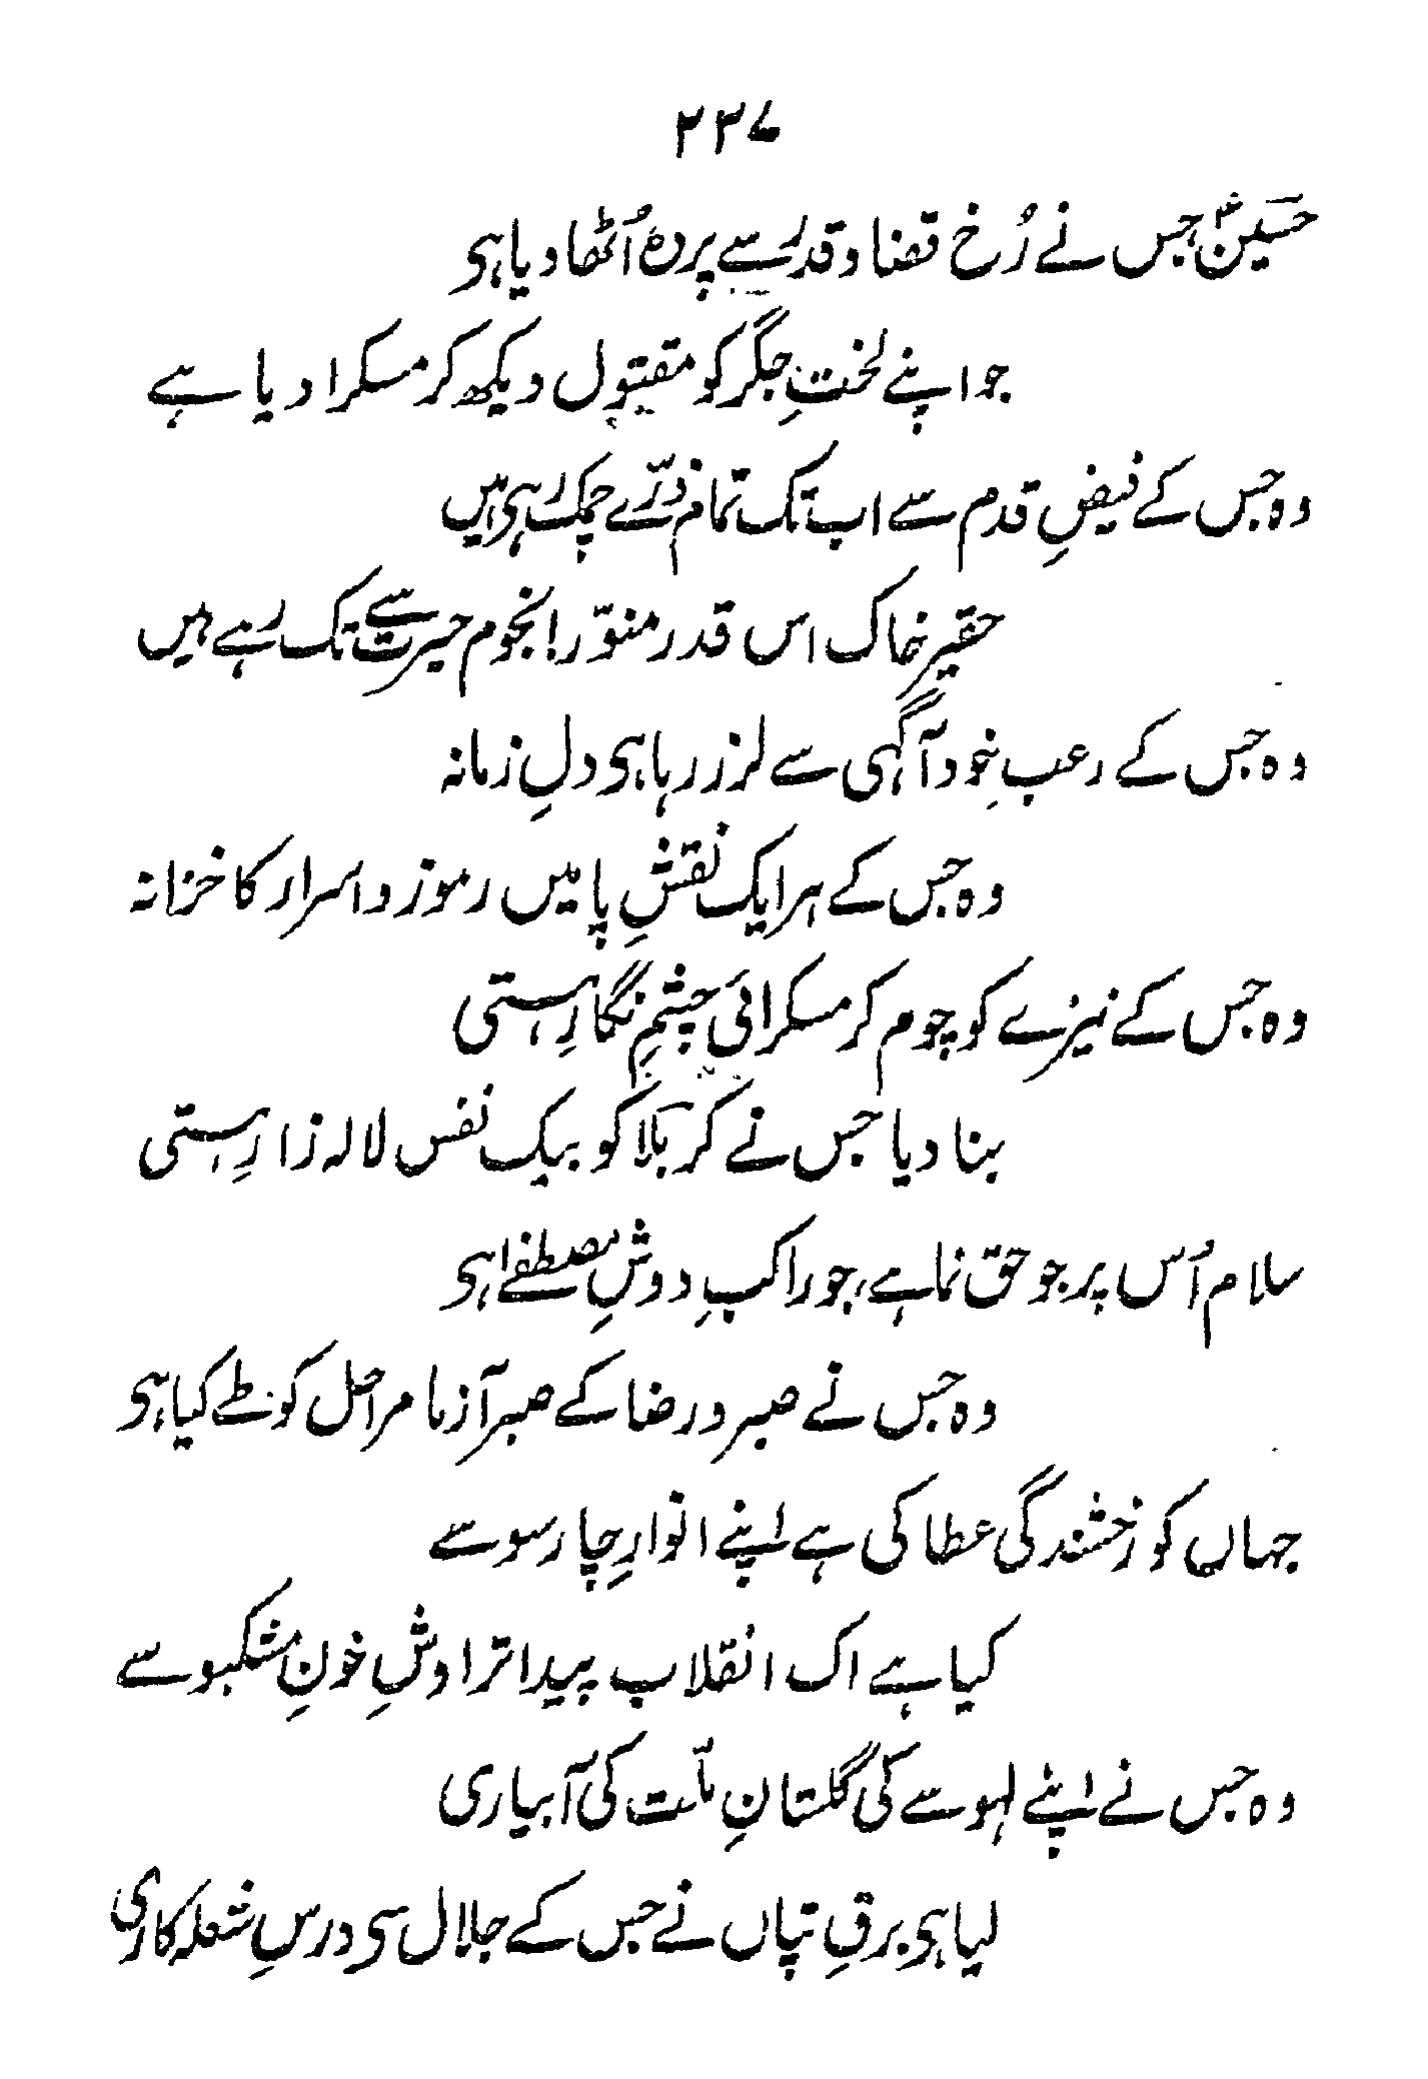 ۲۳۷
حسینؑ جس نے رُخ قضا و قدر سے پردہ اُٹھا دیا ہی
جو اپنے لختِ جگر کو مقتول دیکھ کر مسکرا دیا ہے
وہ جس کے فیضِ قدم سے اب تک تمام ذرّے چمک رہی ہیں
حقیر خاک اس قدر منوّر! نجوم حیرت سے تک رہے ہیں
وہ جس کے رعبِ خود آگہی سے لرز رہا ہی دلِ زمانہ
وہ جس کے ہر ایک نقشِ پا میں رموز و اسرار کا خزانہ
وہ جس کے نیزے کو چوم کر مسکرائی چشمِ نگارِ ہستی
بنا دیا جس نے کربلا کو بیک نفس لالہ زارِ ہستی
سلام اُس پر جو حق نما ہے، جو راکبِ دوشِ مصطفےٰ ہی
وہ جس نے صبر و رضا کے صبر آزما مراحل کو طے کیا ہی
جہاں کو رخشندگی عطا کی ہے اپنے انوارِ چار سو سے
کیا ہے اک انقلاب پیدا تراوشِ خونِ مشکبو سے
وہ جس نے اپنے لہو سے کی گلستانِ ملّت کی آبیاری
لیا ہی برقِ تپاں نے جس کے جلال سی درسِ شعلہ کاری